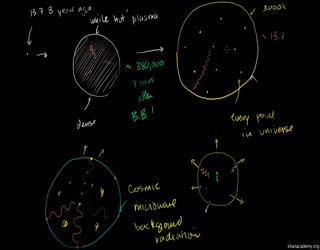 13.7 B years ago
white hot plasma
3000K
~ 13.7
~ 380,000
years
after
B.B.!
dense
every point
in universe
Cosmic
microwave
background
radiation
khanacademy.org